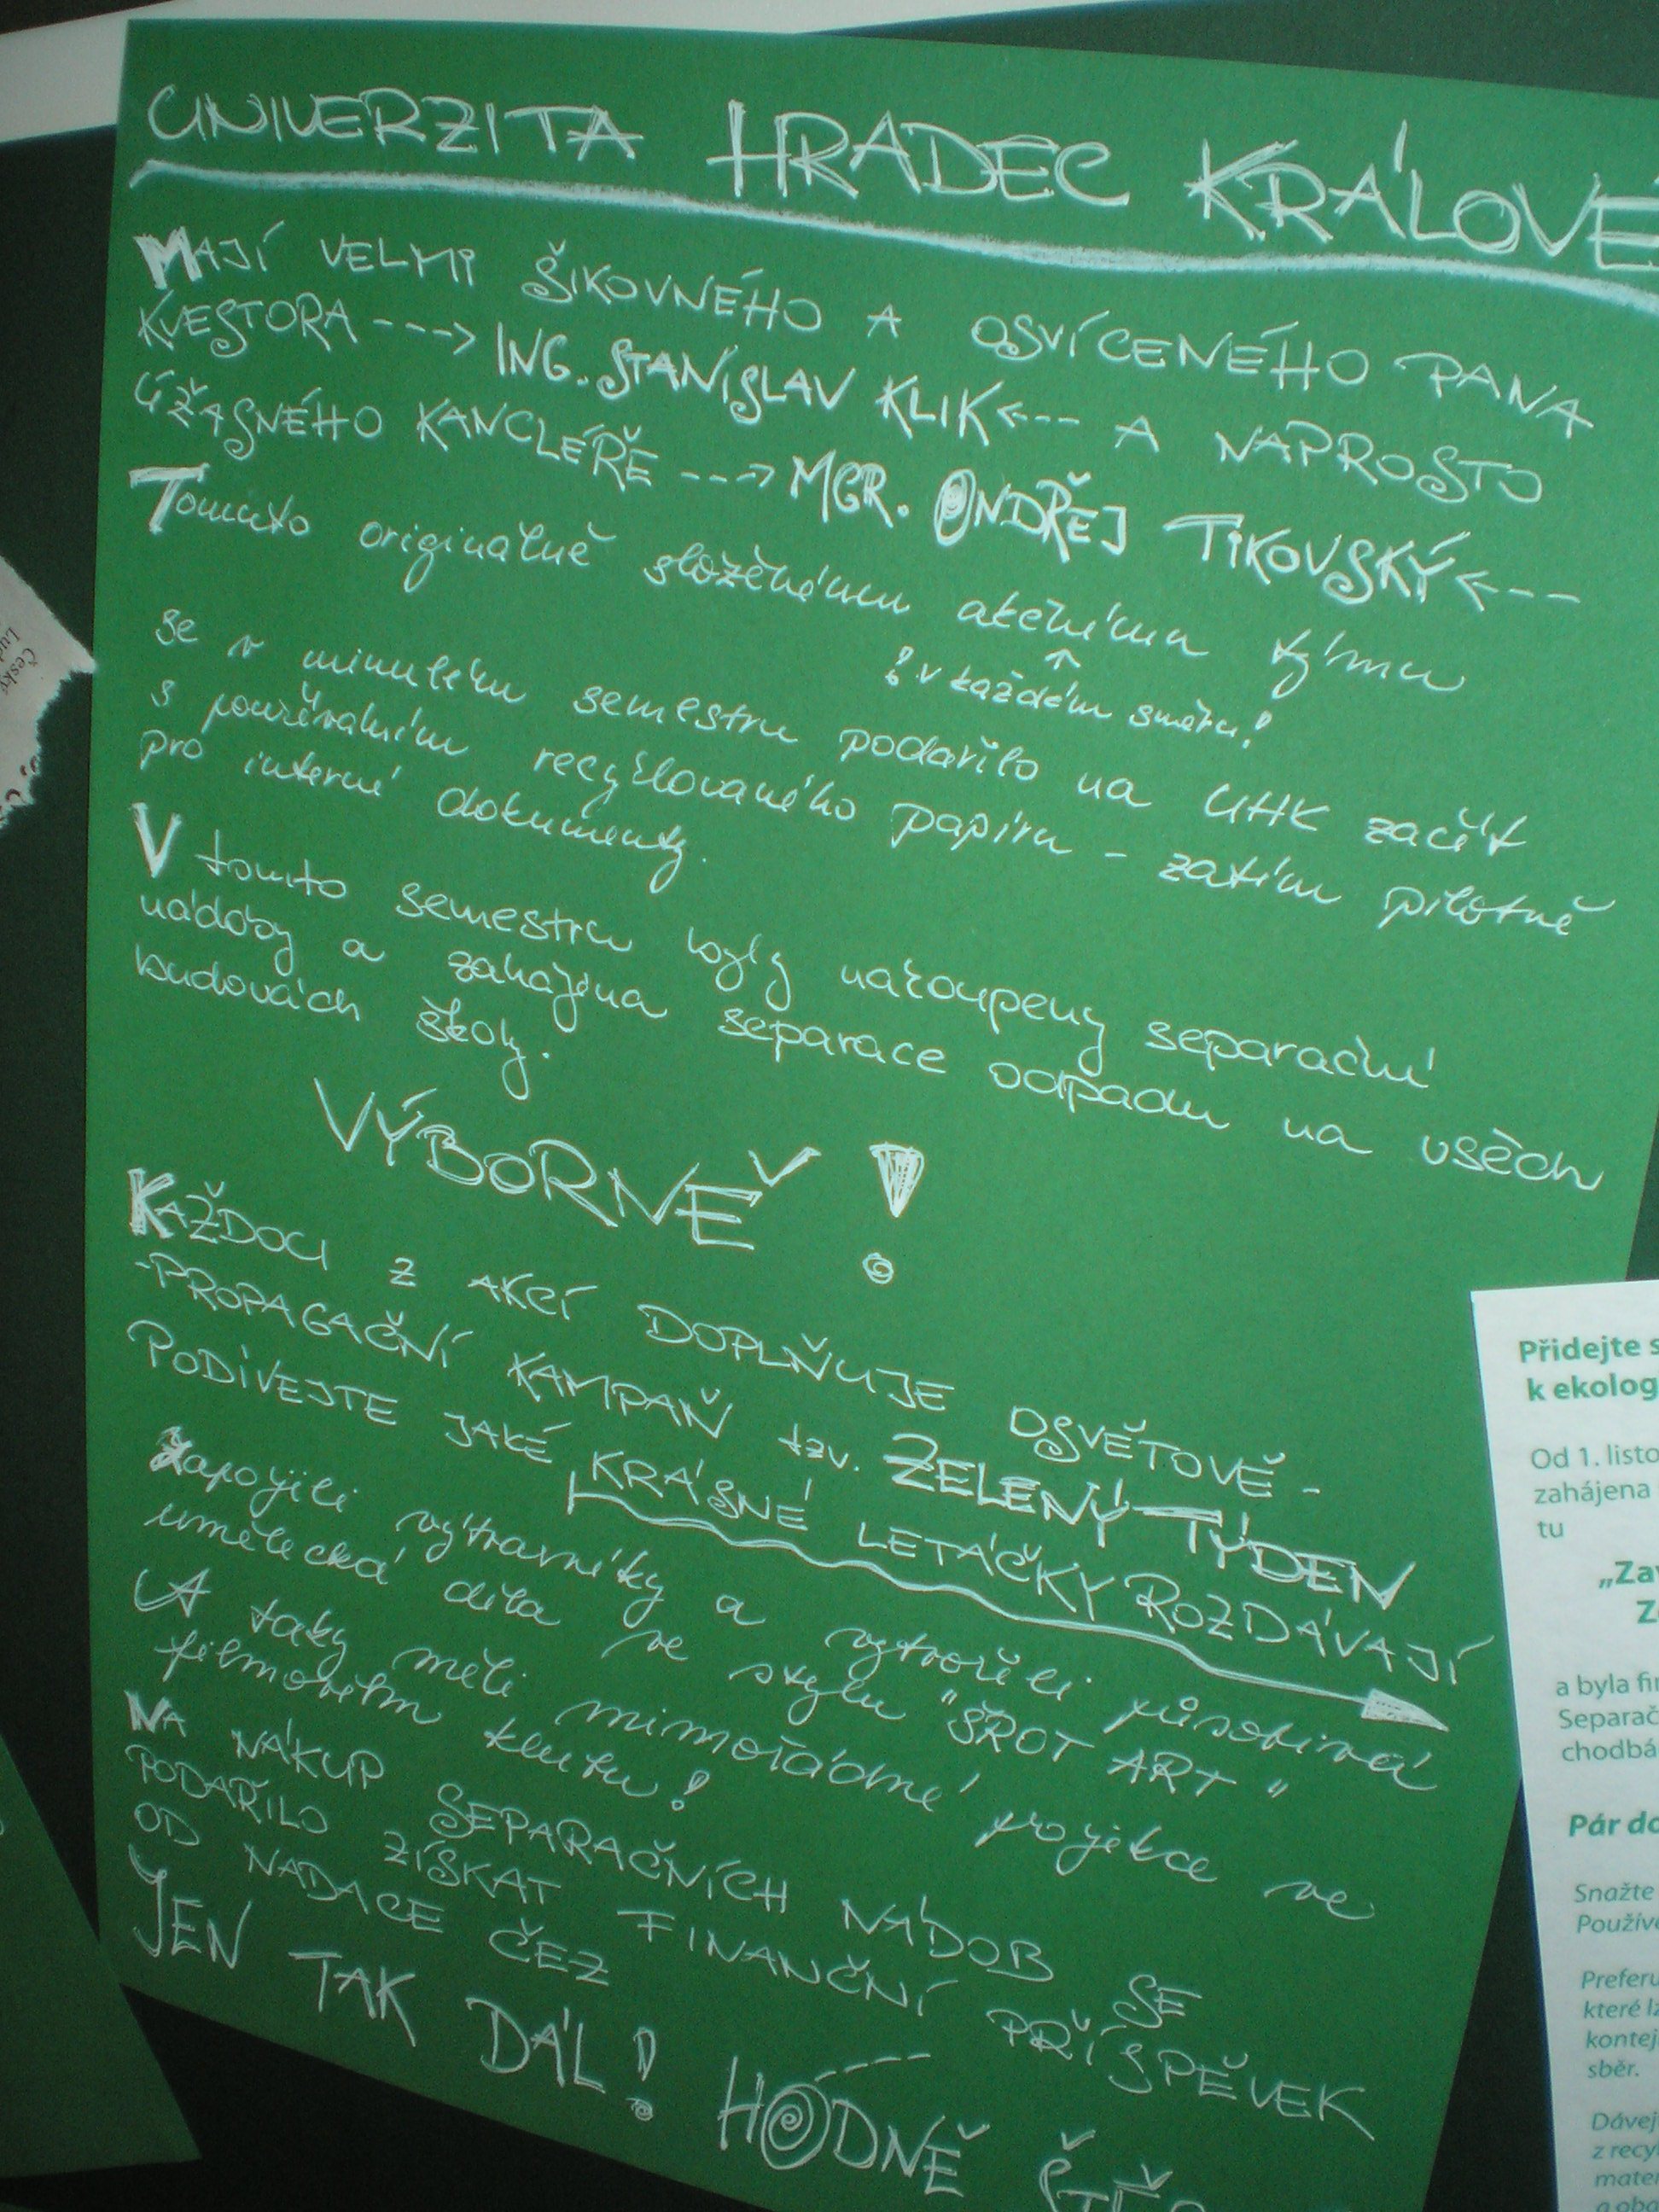 UNIVERZITA HRADEC KRÁLOVÉ
MAJÍ VELMI ŠIKOVNÉHO A OSVÍCENÉHO PANA
KVESTORA ---> ING. STANISLAV KLIK <--- A NAPROSTO
ÚŽASNÉHO KANCLÉŘE ---> MGR. ONDŘEJ TIKOVSKÝ <---
Tomuto originálně složenému akčnímu týmu
! v každém směru!
se v minulém semestru podařilo na UHK začít
s používáním recyklovaného papíru - zatím pilotně
pro interní dokumenty.
V tomto semestru byly nakoupeny separační
nádoby a zahájena separace odpadu na všech
budovách školy.
VÝBORNĚ!
KAŽDOU Z AKCÍ DOPLŇUJE OSVĚTOVĚ-
-PROPAGAČNÍ KAMPAŇ tzv. ZELENÝ TÝDEN
PODÍVEJTE JAKÉ KRÁSNÉ LETÁČKY ROZDÁVAJÍ
Zapojili výtvarníky a vytvořili působivá
umělecká díla ve stylu "ŠROT ART"
A taky měli mimořádné projekce ve
filmovém klubu!
NA NÁKUP SEPARAČNÍCH NÁDOB SE
PODAŘILO ZÍSKAT FINANČNÍ PŘÍSPĚVEK
OD NADACE ČEZ
JEN TAK DÁL! HODNĚ
Přidejte s
k ekolog
Od 1. listo
zahájena
tu
„Zav
a byla fi
Separač
chodbá
Pár do
Snažte
Použív
Prefer
které lz
kontej
sběr.
Dávej
z recy
mater
Český